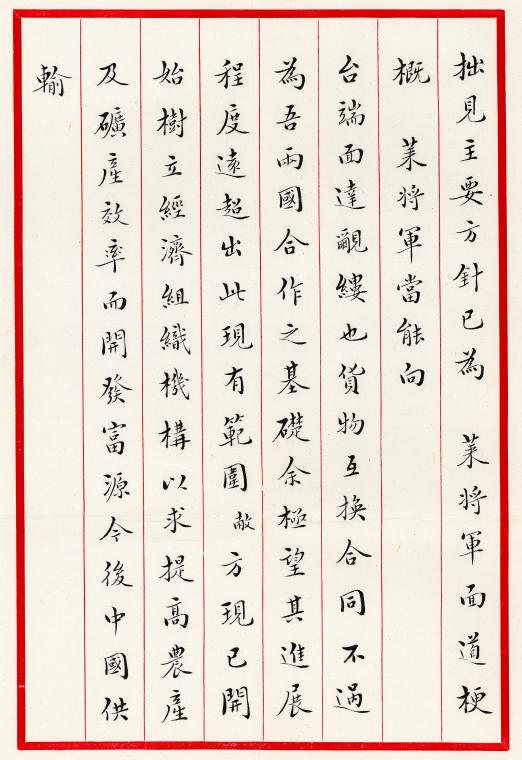 拙見主要方針已為　萊將軍面道梗
概　萊將軍當能向
台端面達覼縷也貨物互換合同不過
為吾兩國合作之基礎余極望其進展
程度遠超出此現有範圍敝方現已開
始樹立經濟組織機構以求提高農產
及礦產效率而開發富源今後中國供
輸